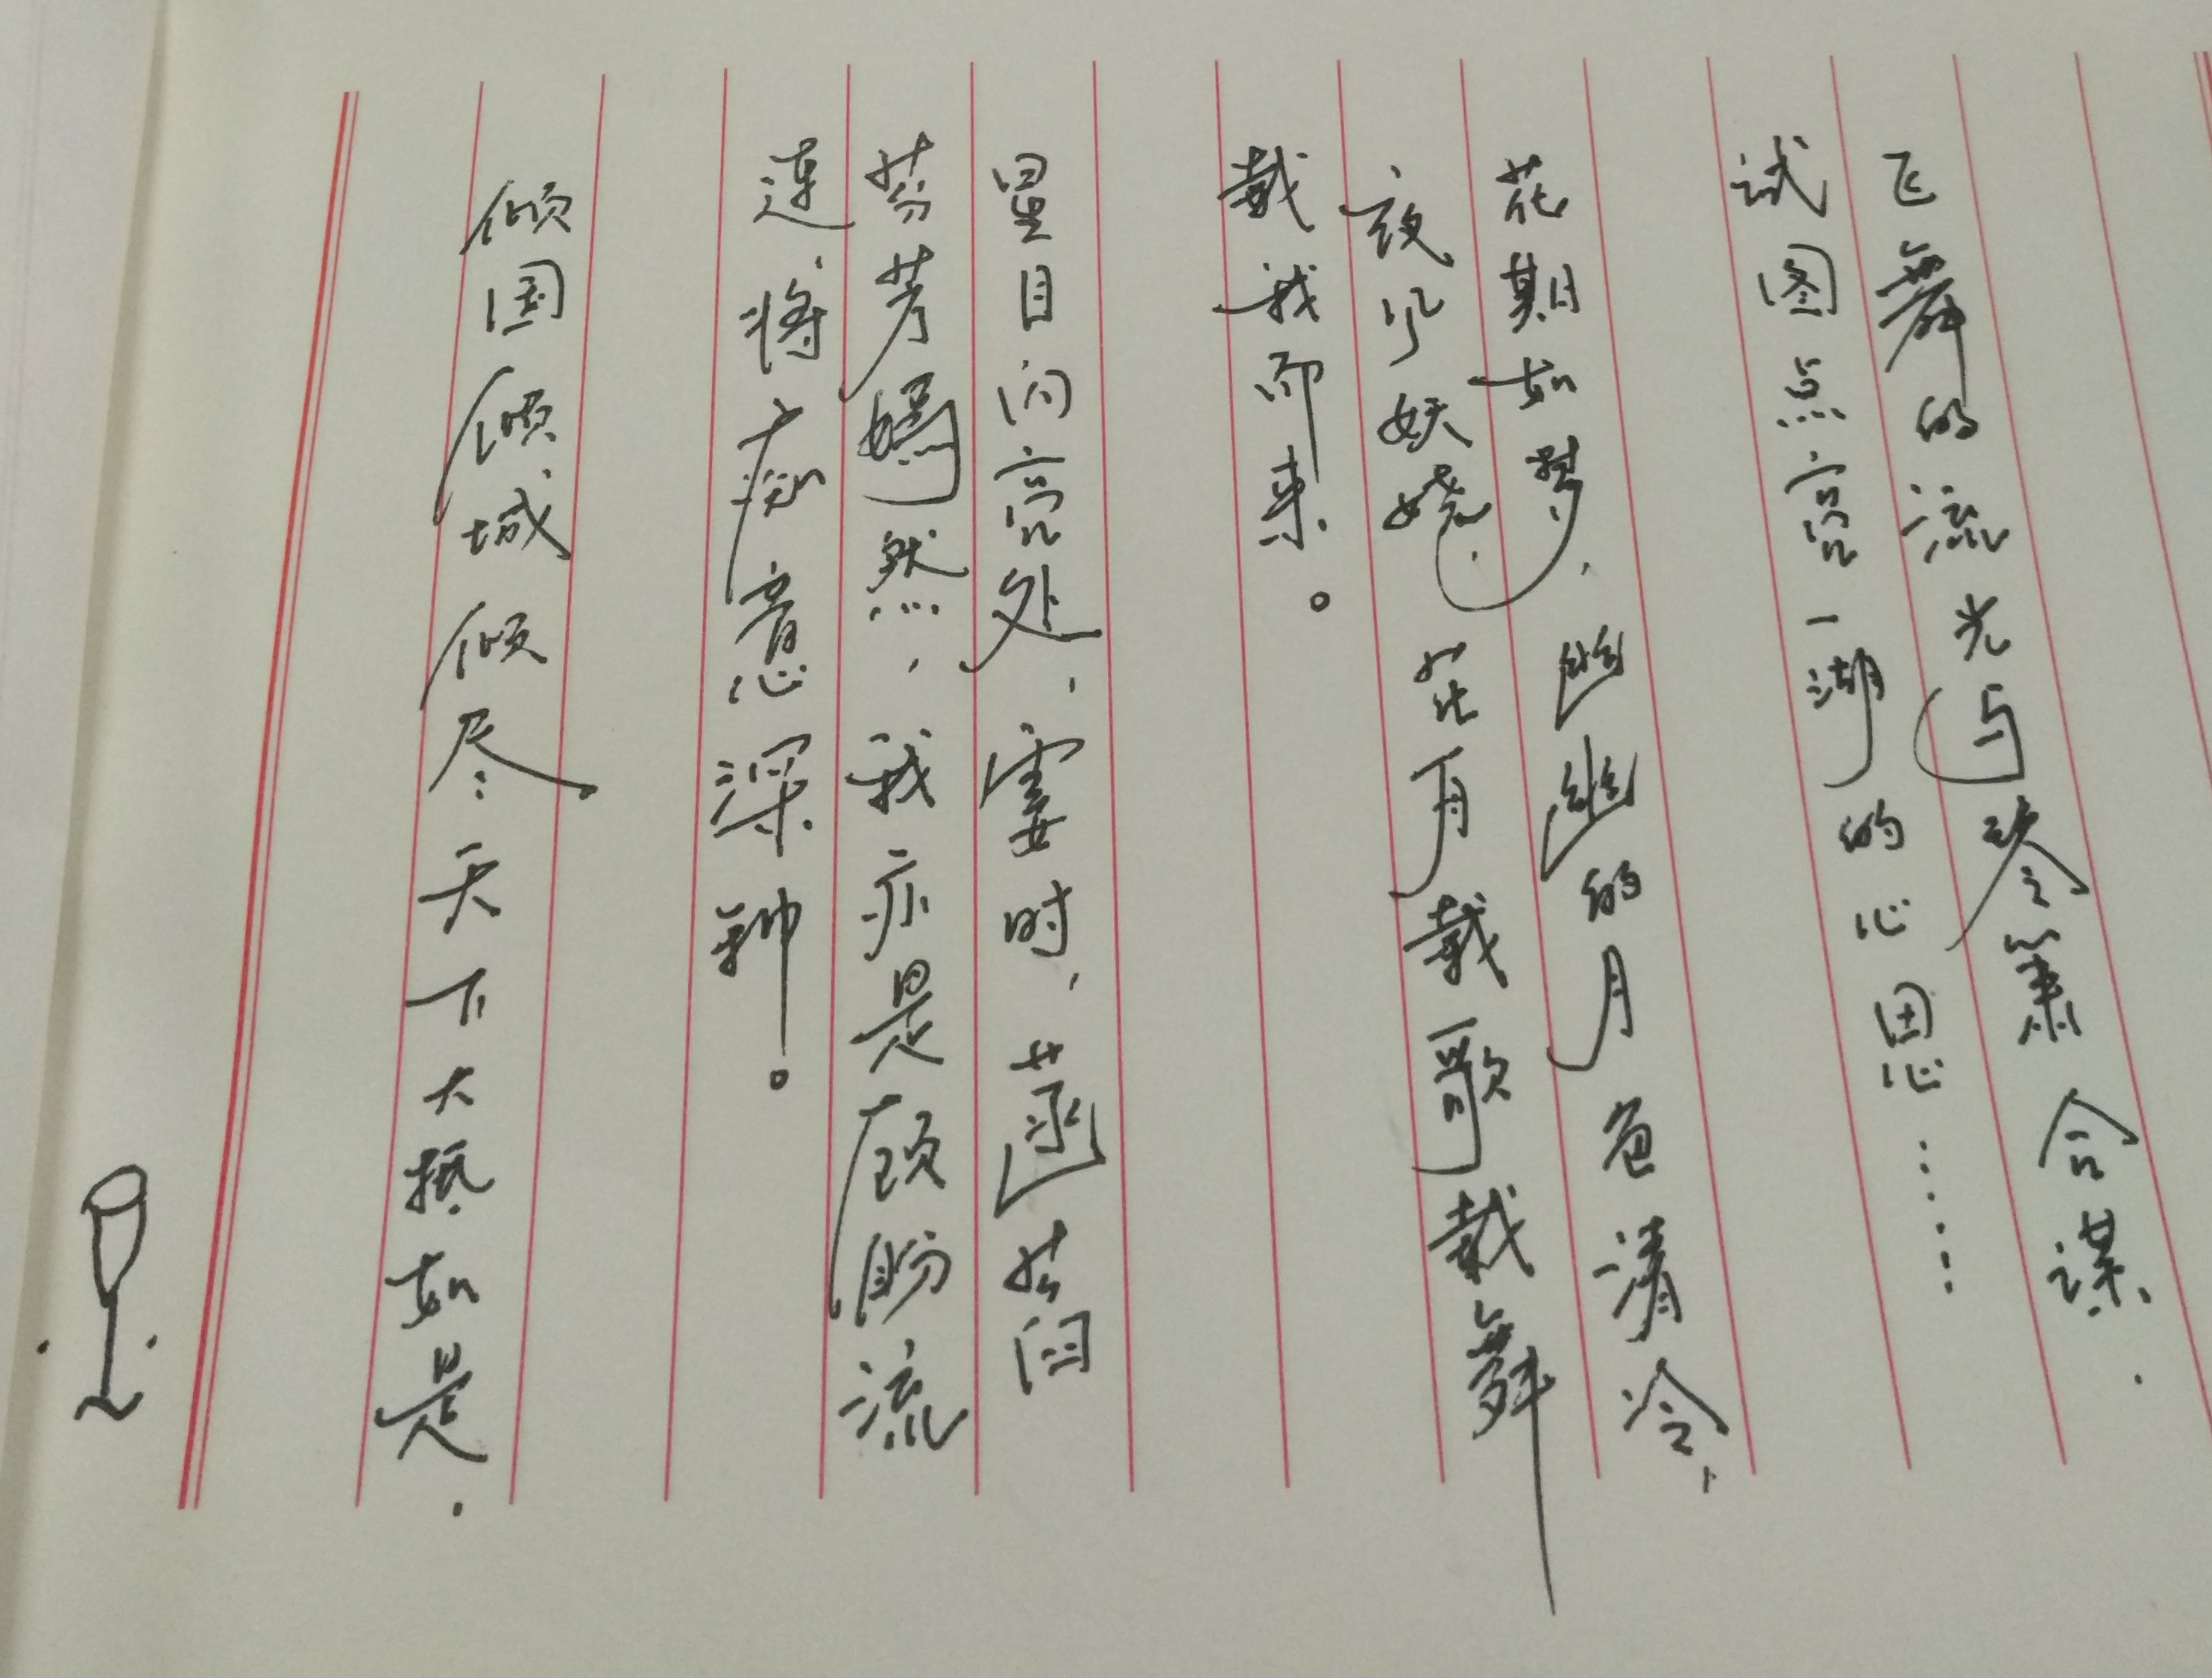 飞舞的流光与琴箫合谋.
试图点亮一湖的心思……
花期如梦，幽幽的月色清冷，
夜风妖娆，花月载歌载舞
载我而来。
星目闪亮处，霎时，菡萏
芬芳嫣然，我亦是顾盼流
连，将痴意深种。
倾国倾城倾尽天下大抵如是.